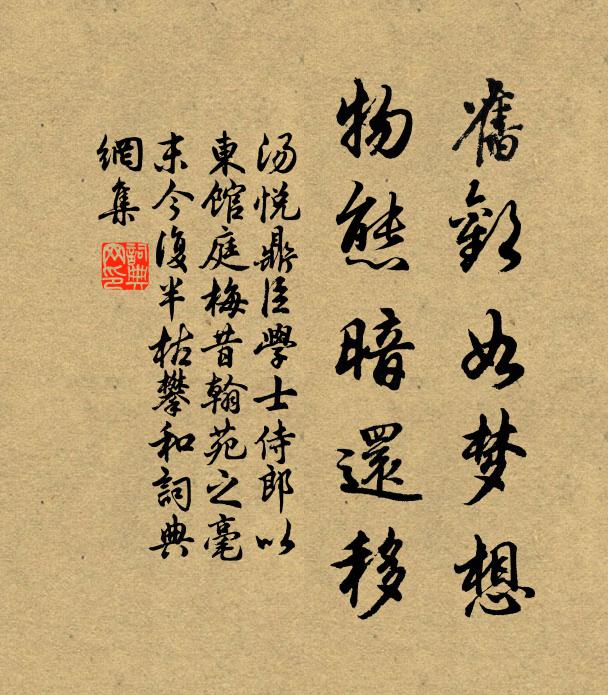 舊歡如梦想
物態暗還移
湯悅鼎臣學士侍郎以
東館庭梅昔翰苑之毫
末今復半枯攀和詞典
網集
詞典
网印